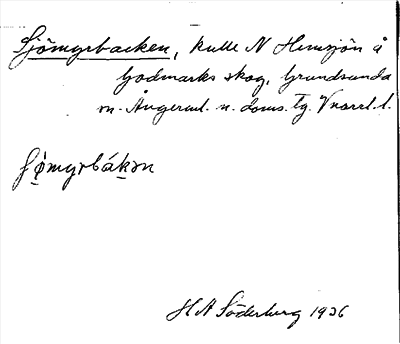 Sjömyrbacken, kulle N Hemsjön å
Godmarks skog, Grundsunda
sn. Ångerml. n. doms. tg. Vnorrl. l.
fömyrbákən
H A Söderberg 1936